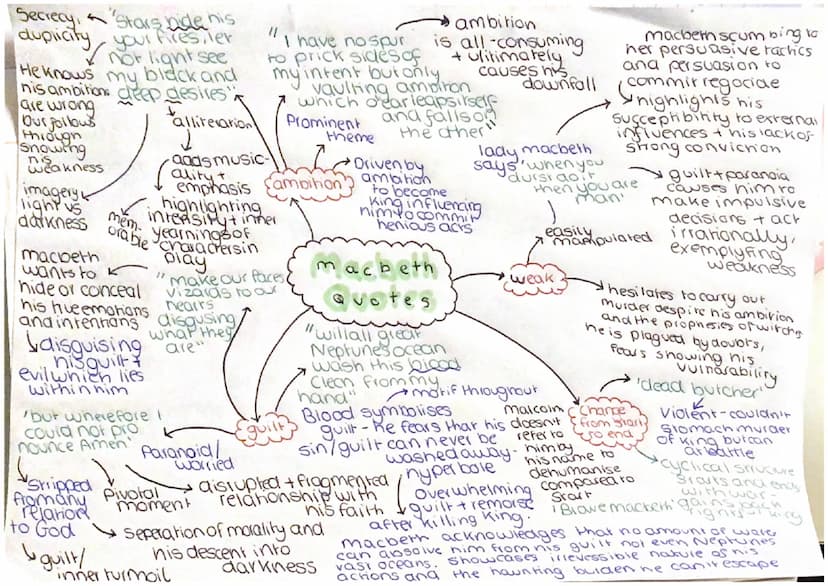 Macbeth
Quotes
ambition
"Stars hide his
your fires, let
not light see
my black and
deep desires"
Secrecy,
duplicity
He knows
his ambitions
are wrong
but follows
through
showing
his
weakness
imagery
light vs
darkness
alliteration
adds music-
ality +
emphasis
highlighting
intensity + inner
yearnings of
characters in
play
mem-
orable
"I have no spur
to prick sides of
my intent but only
vaulting ambition
which o'erleaps itself
and falls on
the other"
ambition
is all-consuming
+ ulitimately
causes his
downfall
Prominent
theme
Driven by
ambition
to become
king influencing
him to commit
henious acts
weak
easily
manipulated
lady macbeth
says 'when you
durst do it
then you are
man'
macbeth scumbing to
her persuasive tactics
and persuasion to
commit regocide
highlights his
susceptibility to external
influences + his lack of
strong conviction
guilt + paranoia
causes him to
make impulsive
decisions + act
irrationally,
exemplfying
weakness
hesitates to carry out
murder despite his ambition
and the prophesies of witches
he is plagued by doubts,
fears showing his
vulnerability
Change
from start
to end
'dead butcher'
Violent - couldn't
stomach murder
of king but can
at battle
cyclical structure
starts and ends
with war -
goes back
fights - king
malcolm
doesn't
refer to
him by
his name to
dehumanise
compared to
start
'Brave macbeth'
guilt
"make our faces
vizards to our
hears
disgusing
what they
are"
macbeth
wants to
hide or conceal
his true emotions
and intentions
disguising
his guilt +
evil which lies
within him
"will all great
Neptunes ocean
wash this blood
clean from my
hand"
motif throughout
Blood symbolises
guilt - He fears that his
sin/guilt can never be
washed away -
hyperbole
overwhelming
guilt + remorse
after killing king.
macbeth acknowledges that no amount of water
can absolve him from his guilt not even Neptunes
vast oceans. showcases irreversible nature of his
actions and the haunting burden he can't escape
'but wherefore I
could not pro
nounce Amen'
Paranoid/
worried
Stripped
from any
relation
to God
guilt/
inner turmoil
Pivotal
moment
disrupted + fragmented
relationship with
his faith
seperation of morality and
his descent into
darkness